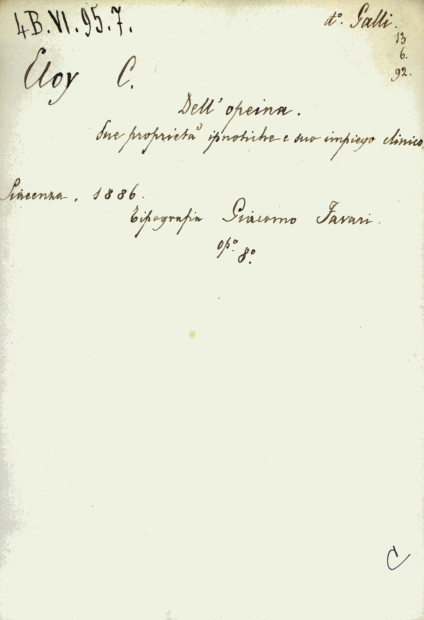 4B.VI.95.7.
dº. Galli.
13
6.
92.
Eloy C.
Dell' opeina.
Sue proprietà ipnotiche e suo impiego clinico.
Piacenza. 1886.
Tipografia Giacomo Favari.
opº. 8º.
C